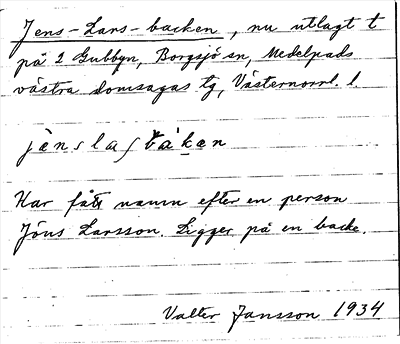 Jens-Lars-backen, nu utlagt t
på 2 Gubbyn, Borgsjö sn, Medelpads
västra domsagas tg, Västernorrl. l.
Har fått namn efter en person
Jöns Larsson. Ligger på en backe.
Valter Jansson 1934